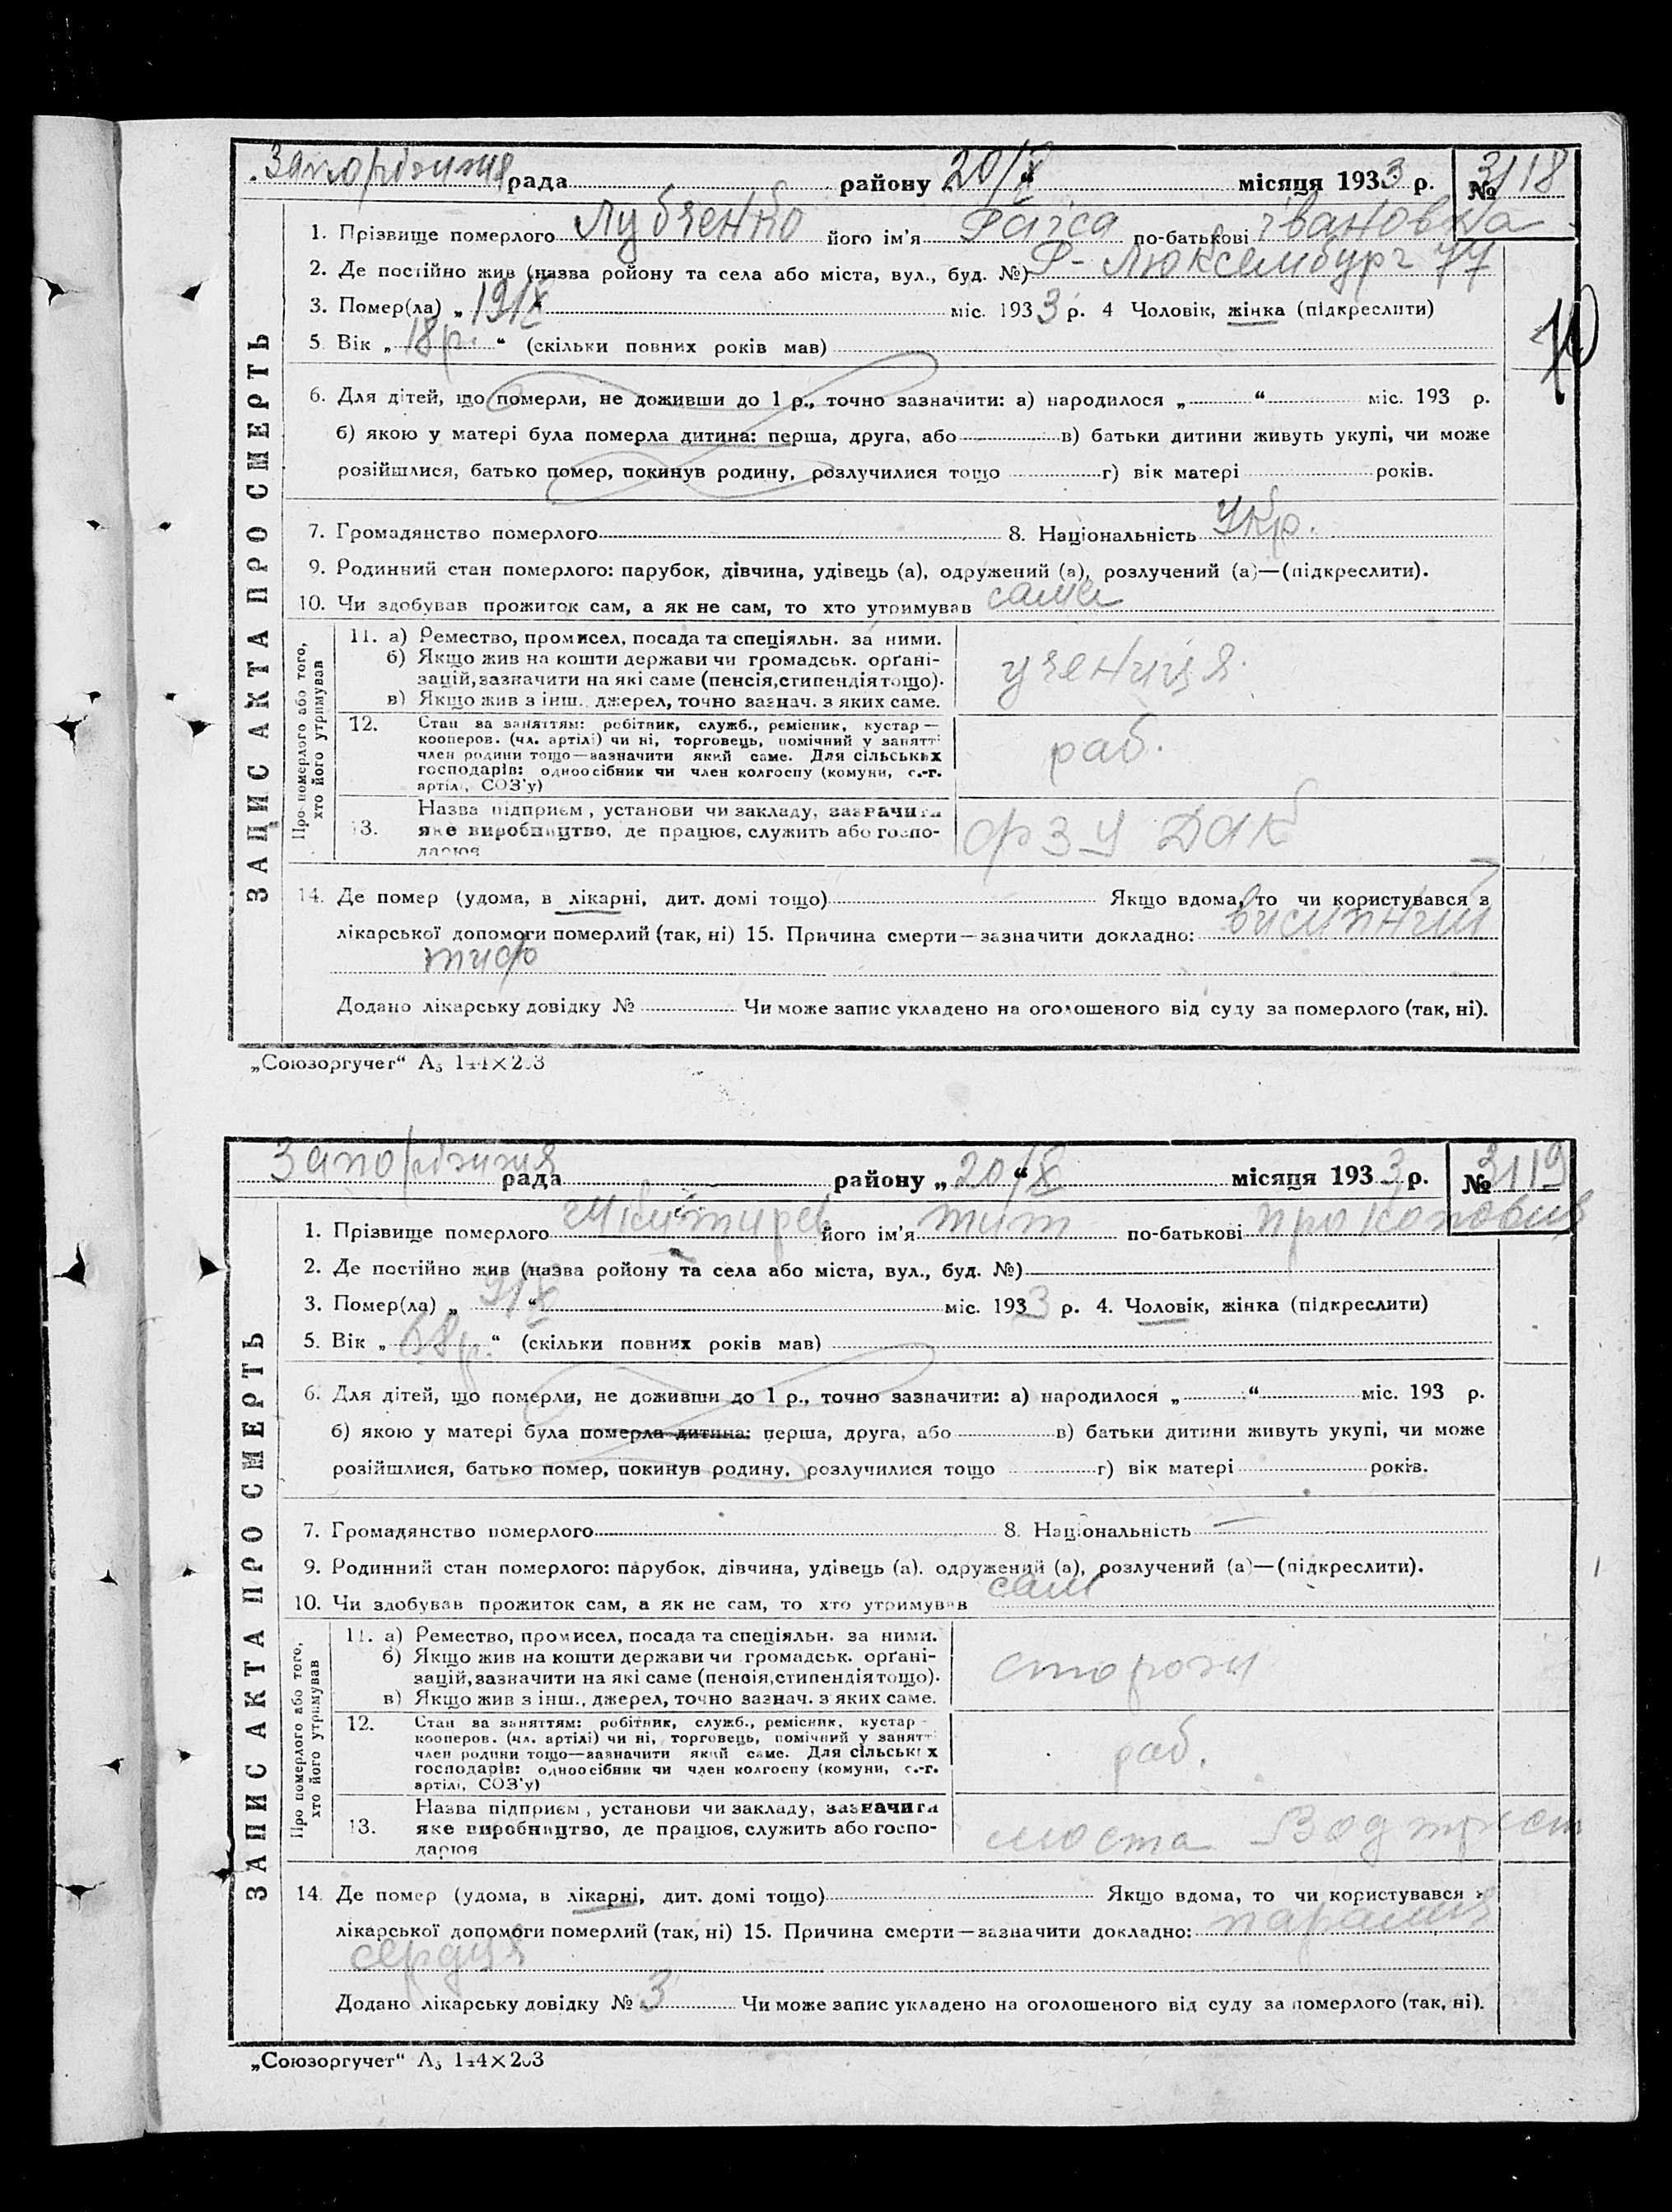 Запоріжжя рада районy 20/X місяця 1933 р. № 3118
1. Прізвище померлого Лубченко його ім'я Раїса по-батькові Івановна
2. Де постійно жив (назва ройону та села або міста, вул., буд. №) Р-Люксембург 77
3. Помер(ла) „ 19/X “ міс. 1933 р. 4 Чоловік, жінка (підкреслити)
5. Вік „ 18 р. “ (скільки повних років мав)
6. Для дітей, що померли, не доживши до 1 р., точно зазначити: а) народилося „ “ міс. 193 р.
б) якою у матері була померла дитина: перша, друга, або в) батьки дитини живуть укупі, чи може
розійшлися, батько помер, покинув родину, розлучилися тощо г) вік матері років.
7. Громадянство померлого 8. Національність Укр.
9. Родинний стан померлого: парубок, дівчина, удівець (а), одружений (а), розлучений (а)—(підкреслити).
10. Чи здобував прожиток сам, а як не сам, то хто утримував сама
ЗАПИС АКТА ПРО СМЕРТЬ
Про померлого або того, хто його утримував
11. а) Ремество, промисел, посада та спеціяльн. за ними.
б) Якщо жив на кошти держави чи громадськ. орґані-
зацій, зазначити на які саме (пенсія, стипендія тощо).
в) Якщо жив з інш. джерел, точно зазнач. з яких саме.
учениця
12. Стан за заняттям: робітник, служб., ремісник, кустар—
кооперов. (чл. артілі) чи ні, торговець, помічний у занятті
член родини тощо—зазначити який саме. Для сільських
господарів: одноосібник чи член колгоспу (комуни, с.-г.
артілі, СОЗ'у)
раб.
13. Назва підприєм, установи чи закладу, зазначити
яке виробництво, де працює, служить або госпо-
дарює
ФЗУ ДАК
14. Де помер (удома, в лікарні, дит. домі тощо) Якщо вдома, то чи користувався з
лікарської допомоги померлий (так, ні) 15. Причина смерти—зазначити докладно: висипний
тиф
Додано лікарську довідку № Чи може запис укладено на оголошеного від суду за померлого (так, ні).
„Союзоргучет“ А₅ 144×203
Запоріжжя рада районy „ 20 “/X місяця 1933 р. № 3119
1. Прізвище померлого його ім'я Тит по-батькові Прокопович
2. Де постійно жив (назва ройону та села або міста, вул., буд. №)
3. Помер(ла) „ “ міс. 1933 р. 4. Чоловік, жінка (підкреслити)
5. Вік „ 68 р. “ (скільки повних років мав)
6. Для дітей, що померли, не доживши до 1 р., точно зазначити: а) народилося „ “ міс. 193 р.
б) якою у матері була померла дитина: перша, друга, або в) батьки дитини живуть укупі, чи може
розійшлися, батько помер, покинув родину, розлучилися тощо г) вік матері років.
7. Громадянство померлого 8. Національність —
9. Родинний стан померлого: парубок, дівчина, удівець (а), одружений (а), розлучений (а)—(підкреслити).
10. Чи здобував прожиток сам, а як не сам, то хто утримував сам
ЗАПИС АКТА ПРО СМЕРТЬ
Про померлого або того, хто його утримував
11. а) Ремество, промисел, посада та спеціяльн. за ними.
б) Якщо жив на кошти держави чи громадськ. орґані-
зацій, зазначити на які саме (пенсія, стипендія тощо).
в) Якщо жив з інш., джерел, точно зазнач. з яких саме.
сторож
12. Стан за заняттям: робітник, служб., ремісник, кустар—
кооперов. (чл. артілі) чи ні, торговець, помічний у занятті
член родини тощо—зазначити який саме. Для сільських
господарів: одноосібник чи член колгоспу (комуни, с.-г.
артілі, СОЗ'у)
раб.
13. Назва підприєм, установи чи закладу, зазначити
яке виробництво, де працює, служить або госпо-
дарює
моста Водтрест
14. Де помер (удома, в лікарні, дит. домі тощо) Якщо вдома, то чи користувався з
лікарської допомоги померлий (так, ні) 15. Причина смерти—зазначити докладно: параліч
серця
Додано лікарську довідку № 3 Чи може запис укладено на оголошеного від суду за померлого (так, ні).
„Союзоргучет“ А₅ 144×203